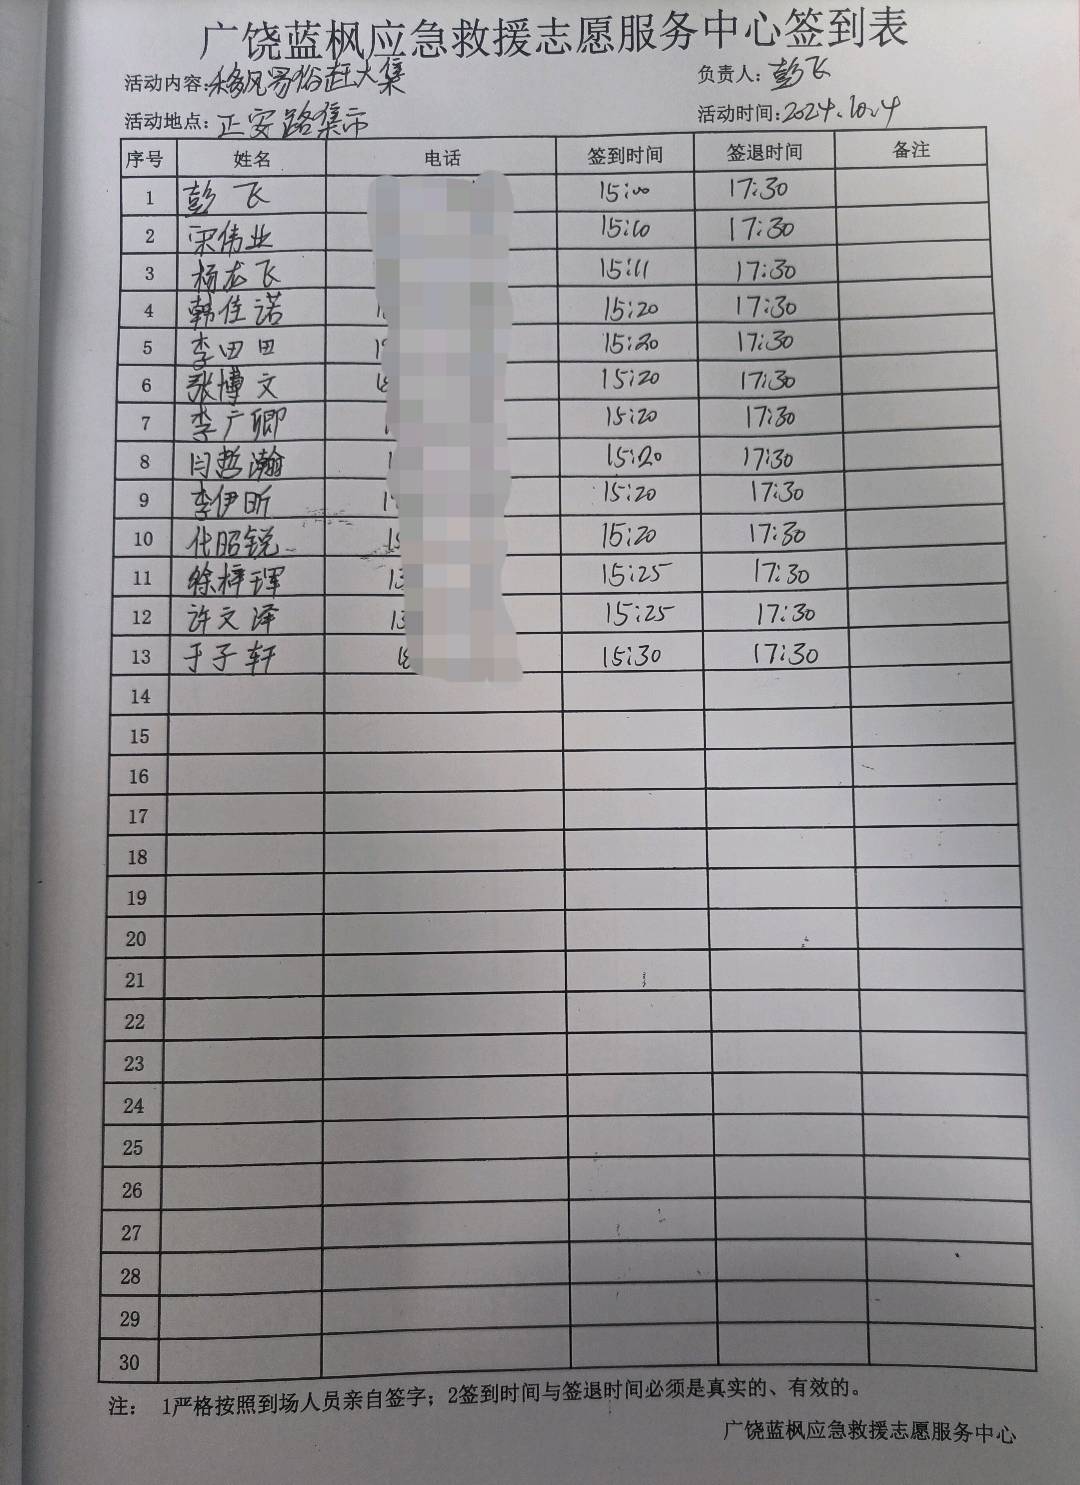 广饶蓝枫应急救援志愿服务中心签到表
活动内容:移风易俗赶大集 负责人:彭飞
活动地点:正安路集市 活动时间:2024.10.4
序号 姓名 电话 签到时间 签退时间 备注
1 彭飞 15:00 17:30
2 宋伟业 15:10 17:30
3 杨龙飞 15:11 17:30
4 韩佳诺 15:20 17:30
5 李田田 15:20 17:30
6 张博文 15:20 17:30
7 李广卿 15:20 17:30
8 闫哲瀚 15:20 17:30
9 李伊昕 15:20 17:30
10 代昭锐 15:20 17:30
11 徐梓珲 13 15:25 17:30
12 许文泽 13 15:25 17:30
13 于子轩 15:30 17:30
14
15
16
17
18
19
20
21
22
23
24
25
26
27
28
29
30
注: 1严格按照到场人员亲自签字;2签到时间与签退时间必须是真实的、有效的。
广饶蓝枫应急救援志愿服务中心